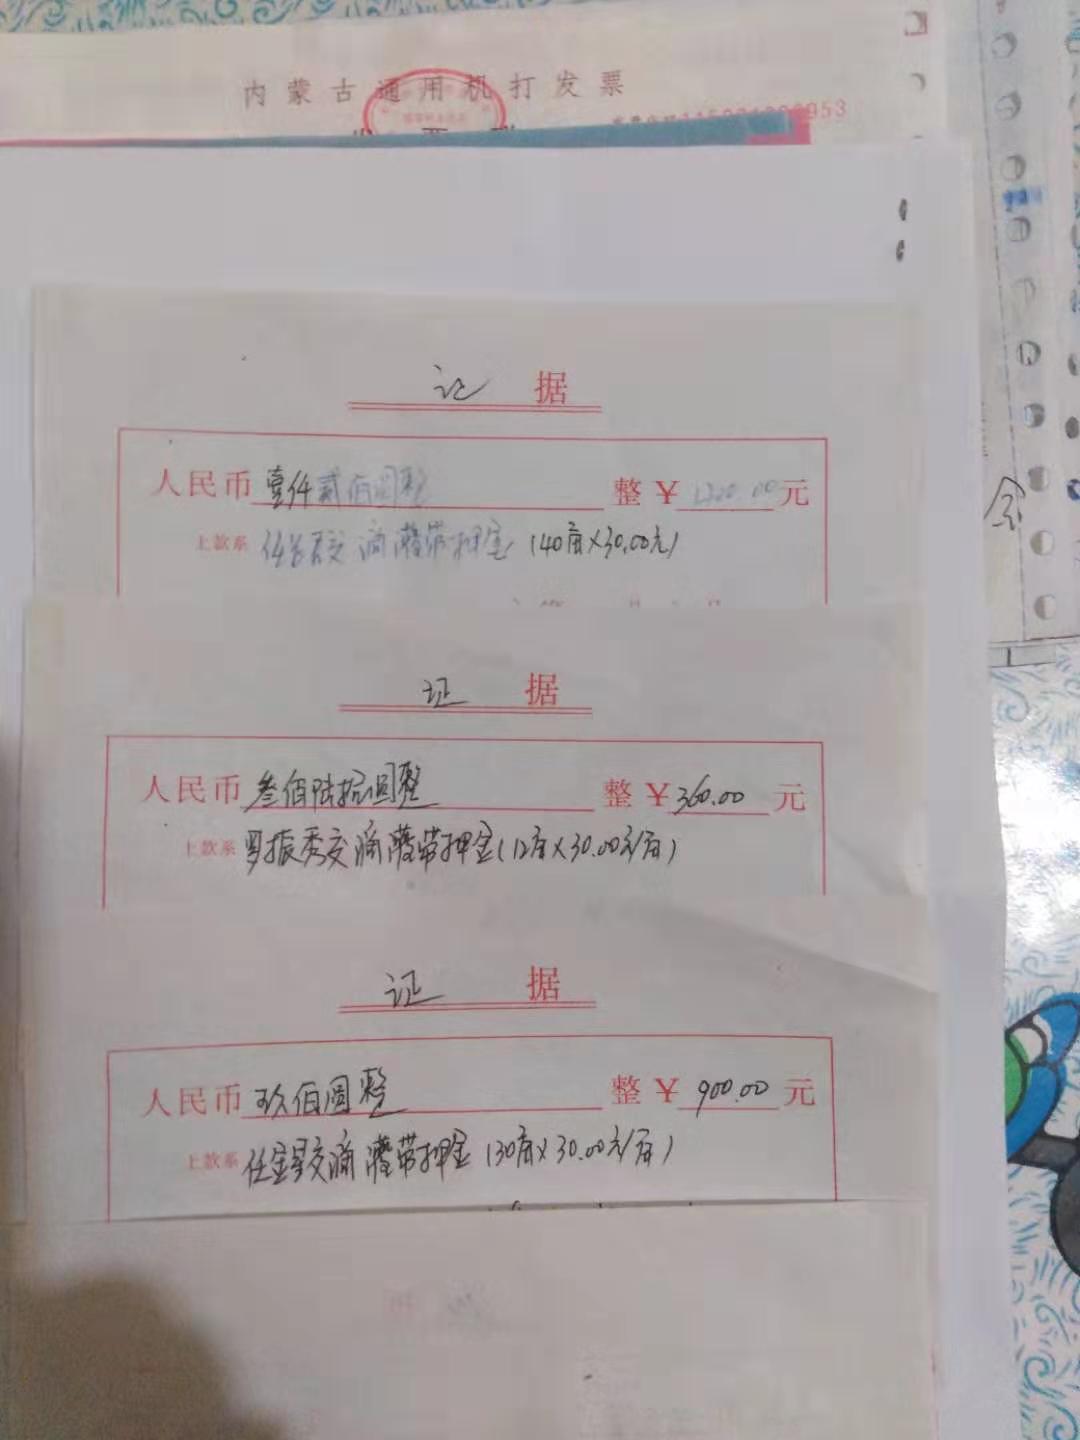 内蒙古通用机打发票
证 据
人民币 壹仟贰佰圆整 整 ¥ 1200.00 元
上款系 交滴灌带押金(40亩×30.00元)
证 据
人民币 叁佰陆拾圆整 整 ¥ 360.00 元
上款系 罗振秀交滴灌带押金(12亩×30.00元/亩)
证 据
人民币 玖佰圆整 整 ¥ 900.00 元
上款系 任金星交滴灌带押金(30亩×30.00元/亩)